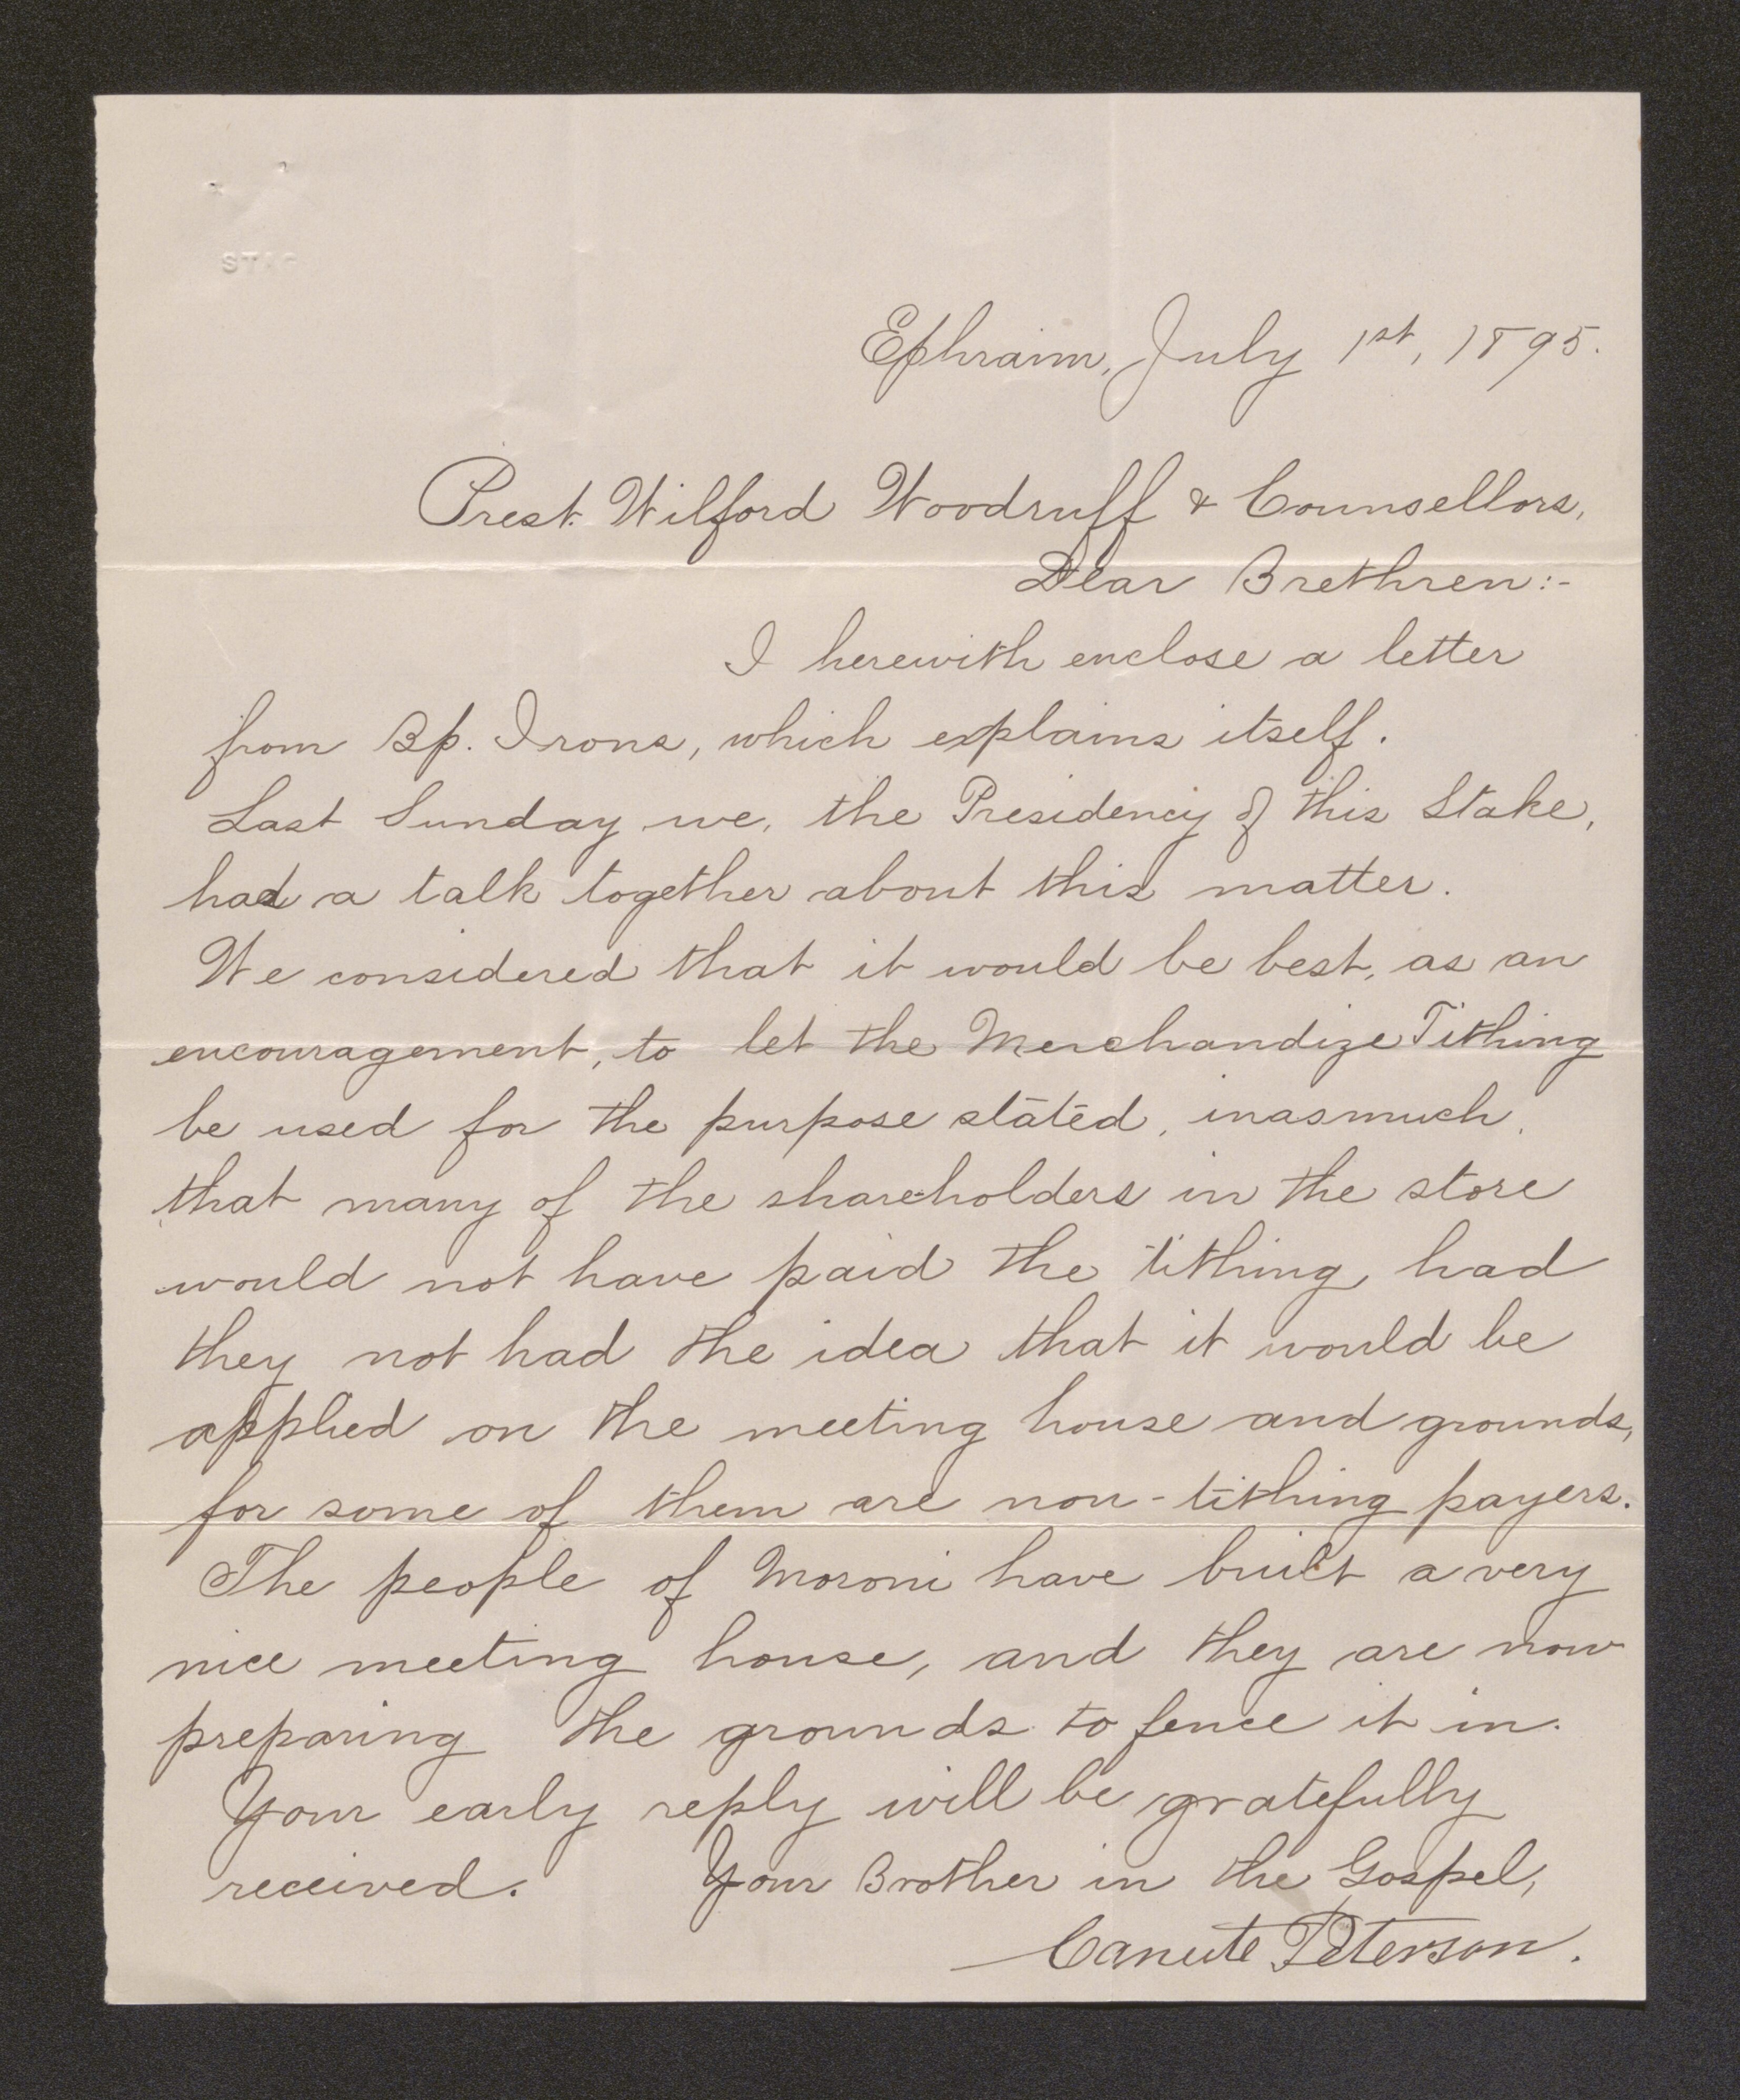 Ephraim, July 1st, 1895.
Prest. Wilford Woodruff & Counsellors,
Dear Brethren:-
I herewith enclose a letter
from Bp. Irons, which explains itself.
Last Sunday we, the Presidency of this Stake,
had a talk together about this matter.
We considered that it would be best, as an
encouragement, to let the Merchandize Tithing
be used for the purpose stated, inasmuch,
that many of the shareholders in the store
would not have paid the tithing, had
they not had the idea that it would be
applied on the meeting house and grounds,
for some of them are non-tithing payers.
The people of Moroni have built a very
nice meeting house, and they are now
preparing the grounds to fence it in.
Your early reply will be gratefully
received. Your Brother in the Gospel,
Canute Peterson.